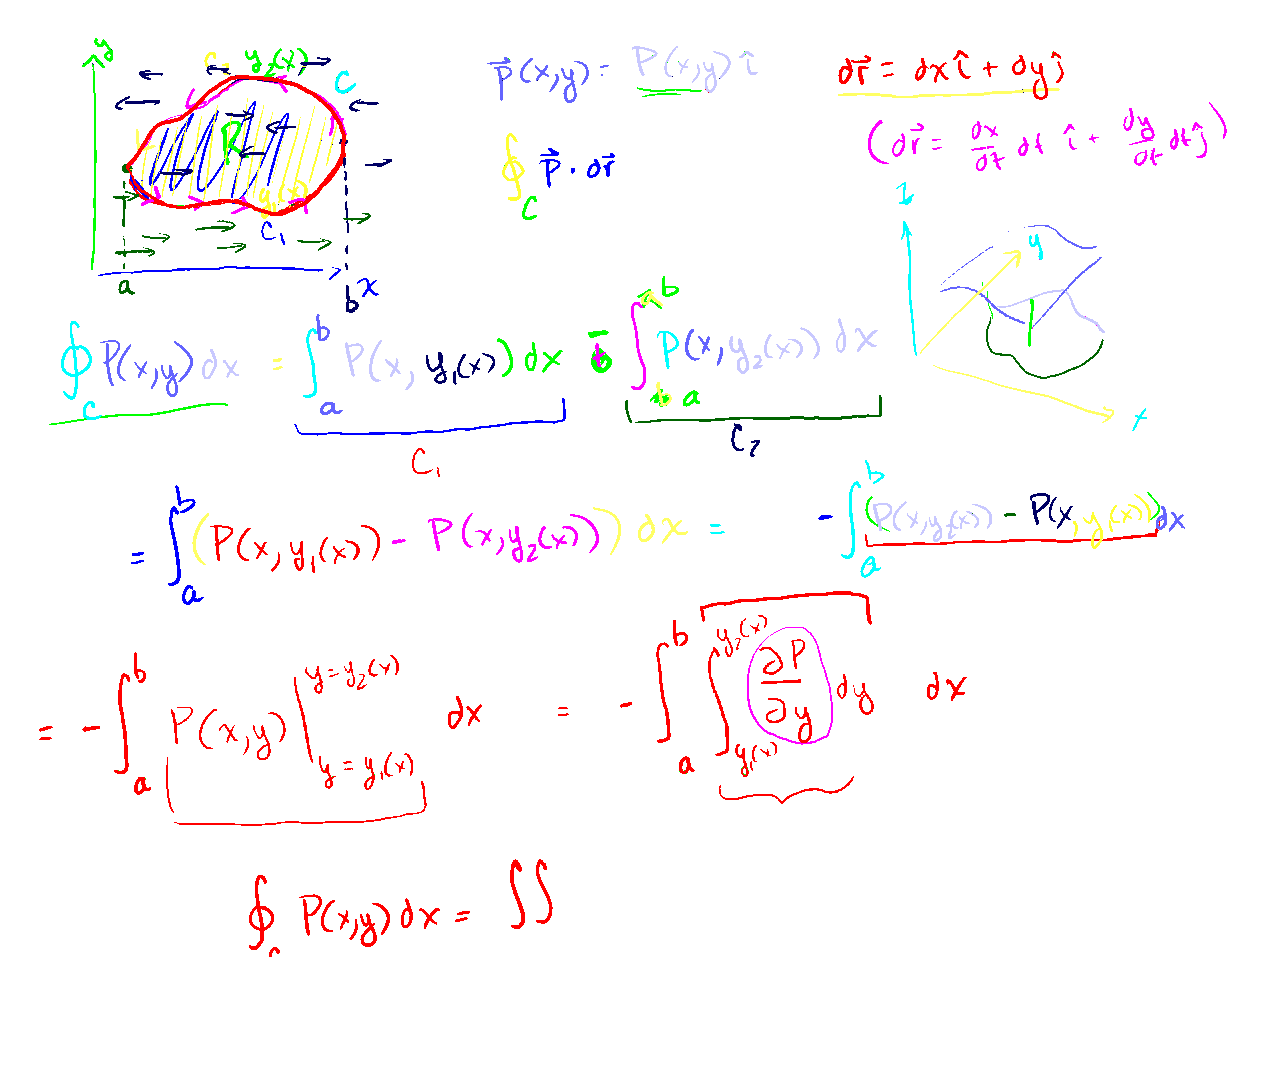 y
y₂(x)
C
R
y₁(x)
C₁
a
b
x
P⃗(x,y) = P(x,y) î
dr⃗ = dx î + dy ĵ
(dr⃗ = dx/dt dt î + dy/dt dt ĵ)
∮_C P⃗ · dr⃗
z
y
x
∮_C P(x,y) dx = ∫_a^b P(x, y₁(x)) dx − ∫_a^b P(x, y₂(x)) dx
C₁
C₂
= ∫_a^b (P(x, y₁(x)) − P(x, y₂(x))) dx = − ∫_a^b (P(x, y₂(x)) − P(x, y₁(x))) dx
= − ∫_a^b P(x,y) |_{y = y₁(x)}^{y = y₂(x)} dx = − ∫_a^b ∫_{y₁(x)}^{y₂(x)} ∂P/∂y dy dx
∮_c P(x,y) dx = ∫∫